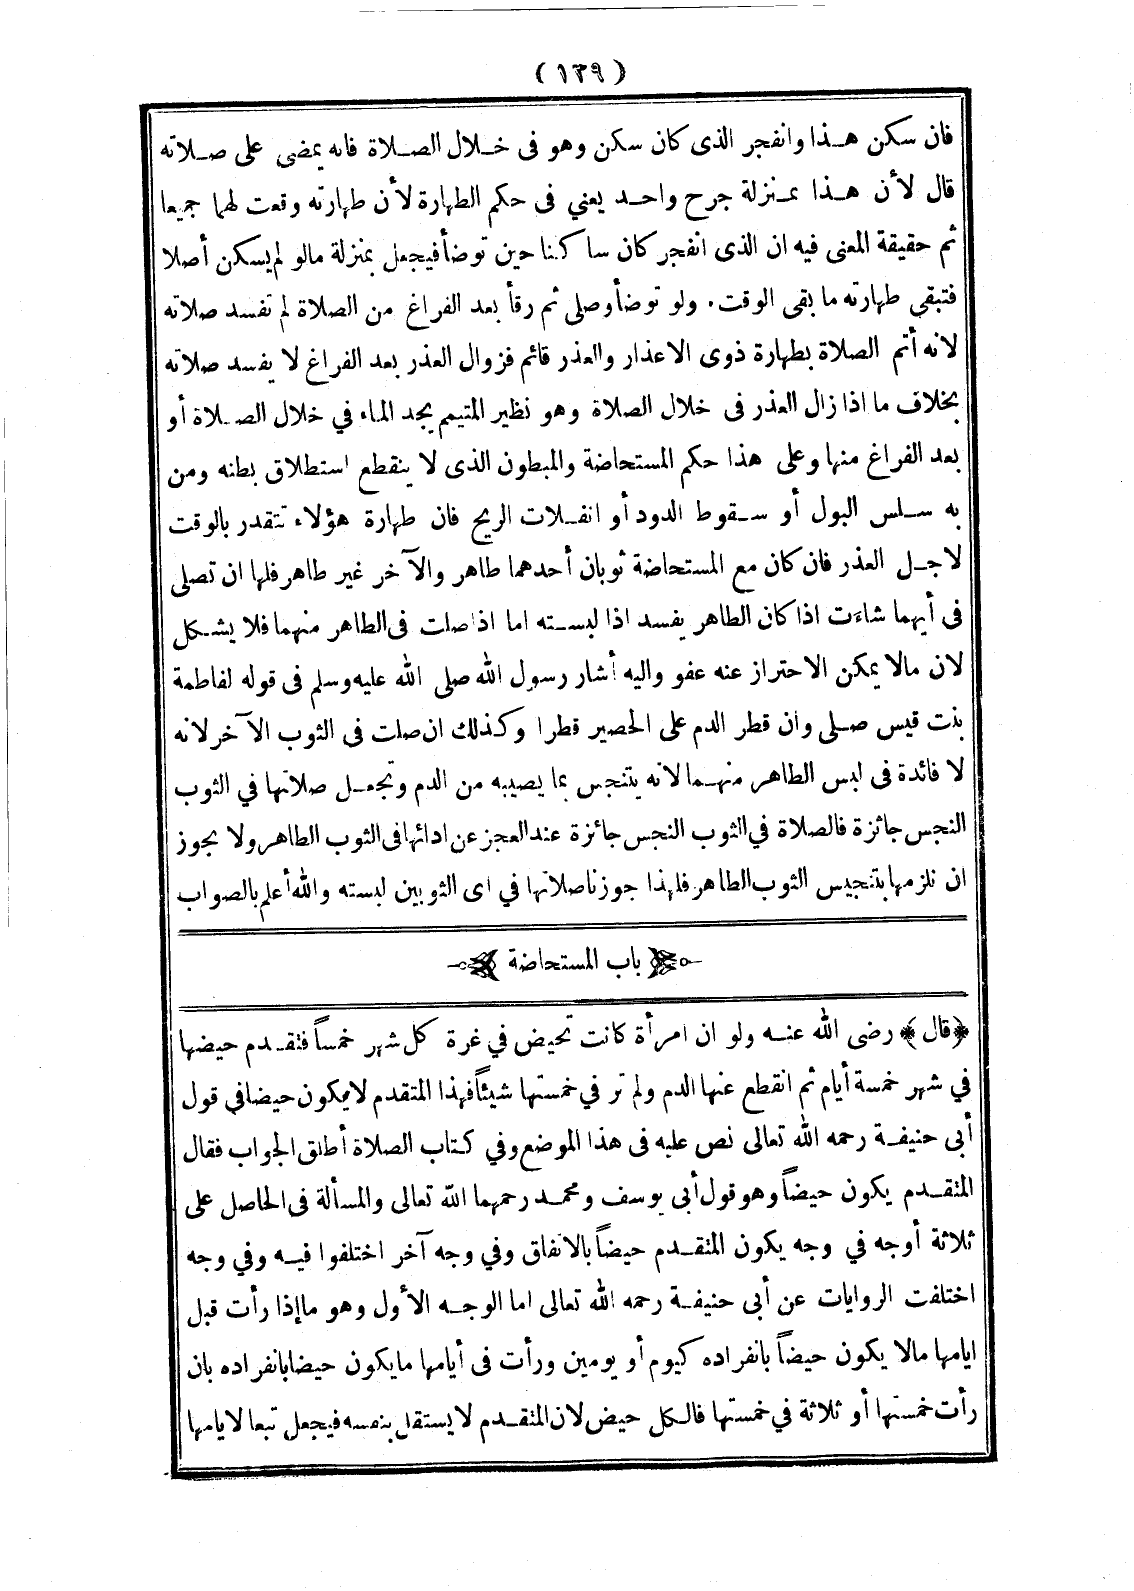 (١٣٩)
فان سكن هذا وانفجر الذى كان سكن وهو فى خلال الصلاة فانه يمضى على صلاته
قال لأن هذا بمنزلة جرح واحد يعني فى حكم الطهارة لأن طهارته وقعت لهما جميعا
ثم حقيقة المعنى فيه ان الذى انفجر كان ساكنا حين توضأ فيجعل بمنزلة مالو لم يسكن أصلا
فتبقى طهارته ما بقى الوقت. ولو توضأ وصلى ثم رقأ بعد الفراغ من الصلاة لم تفسد صلاته
لانه أتم الصلاة بطهارة ذوى الاعذار والعذر قائم فزوال العذر بعد الفراغ لا يفسد صلاته
بخلاف ما اذا زال العذر فى خلال الصلاة وهو نظير المتيمم يجد الماء في خلال الصلاة أو
بعد الفراغ منها وعلى هذا حكم المستحاضة والمبطون الذى لا ينقطع استطلاق بطنه ومن
به سلس البول أو سقوط الدود أو انفلات الريح فان طهارة هؤلاء تتقدر بالوقت
لاجل العذر فان كان مع المستحاضة ثوبان أحدهما طاهر والآخر غير طاهر فلها ان تصلى
فى أيهما شاءت اذا كان الطاهر يفسد اذا لبسته اما اذا صلت فى الطاهر منهما فلا يشكل
لان مالا يمكن الاحتراز عنه عفو واليه أشار رسول الله صلى الله عليه وسلم فى قوله لفاطمة
بنت قيس صلى وان قطر الدم على الحصير قطرا وكذلك ان صلت فى الثوب الآخر لانه
لا فائدة فى لبس الطاهر منهما لانه يتنجس بما يصيبه من الدم وتجعل صلاتها في الثوب
النجس جائزة فالصلاة في الثوب النجس جائزة عند العجز عن ادائها فى الثوب الطاهر ولا يجوز
ان نلزمها بتنجيس الثوب الطاهر فلهذا جوزنا صلاتها في اى الثوبين لبسته والله أعلم بالصواب
باب المستحاضة
﴿قال﴾ رضى الله عنه ولو ان امرأة كانت تحيض في غرة كل شهر خمساً فتقدم حيضها
في شهر خمسة أيام ثم انقطع عنها الدم ولم تر في خمستها شيئاً فهذا المتقدم لا يكون حيضا في قول
أبى حنيفة رحمه الله تعالى نص عليه فى هذا الموضع وفي كتاب الصلاة أطلق الجواب فقال
المتقدم يكون حيضاً وهو قول أبى يوسف ومحمد رحمهما الله تعالى والمسألة فى الحاصل على
ثلاثة أوجه في وجه يكون المتقدم حيضاً بالاتفاق وفي وجه آخر اختلفوا فيه وفي وجه
اختلفت الروايات عن أبى حنيفة رحمه الله تعالى اما الوجه الأول وهو ماإذا رأت قبل
ايامها مالا يكون حيضاً بانفراده كيوم أو يومين ورأت فى أيامها مايكون حيضا بانفراده بان
رأت خمستها أو ثلاثة في خمستها فالكل حيض لان المتقدم لا يستقل بنفسه فيجعل تبعا لايامها